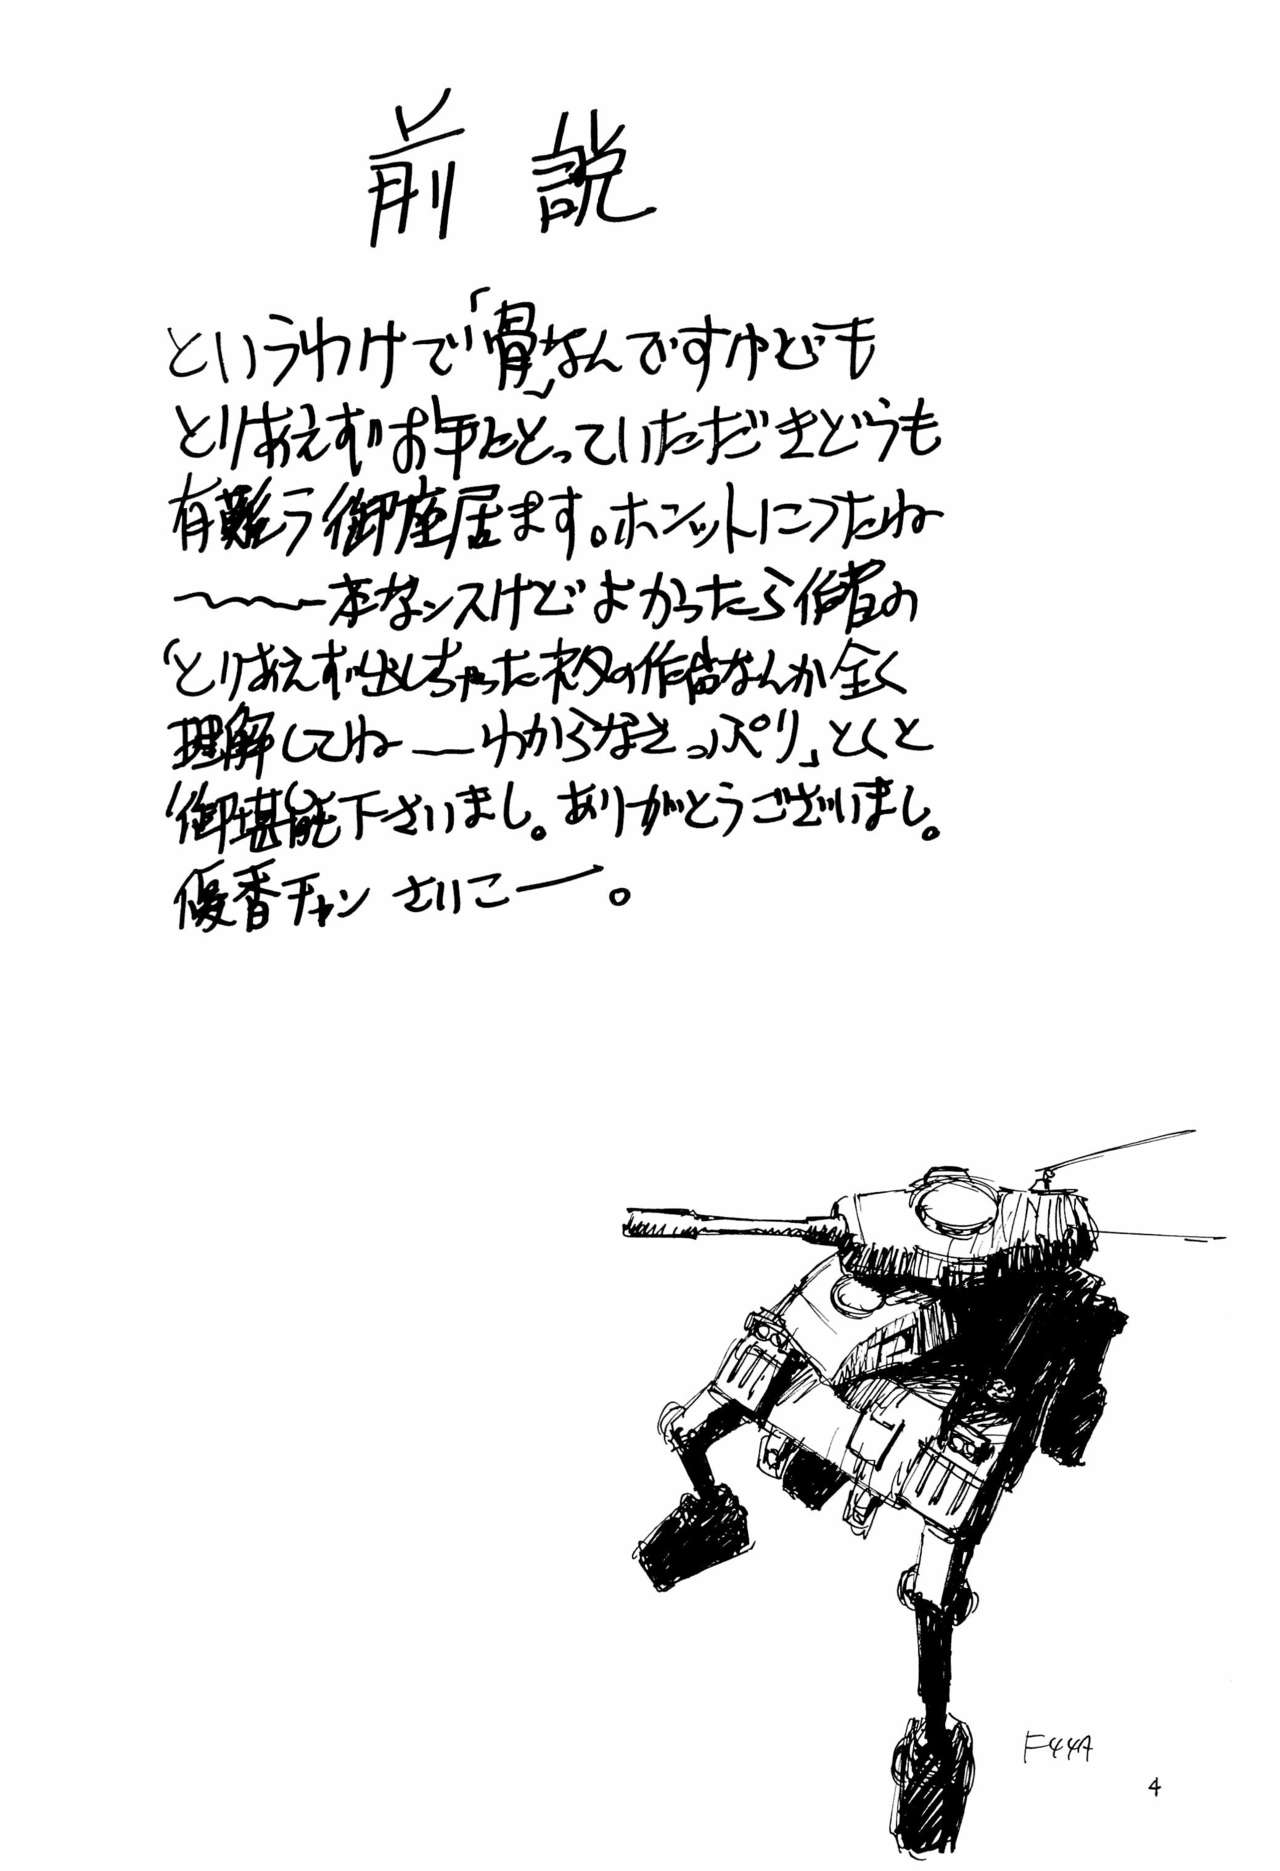 前説
というわけで「骨」なんですけども
とりあえずお手にとっていただきどうも
有難う御座居ます。ホンットにつたね
〜〜〜本なンスけどよかったら作者の
「とりあえず出しちゃったネタの作品なんか全く
理解してね――わからなさっぷり」とくと
御堪能下さいまし。ありがとうございまし。
優香チャン さいこー。
F44A
4